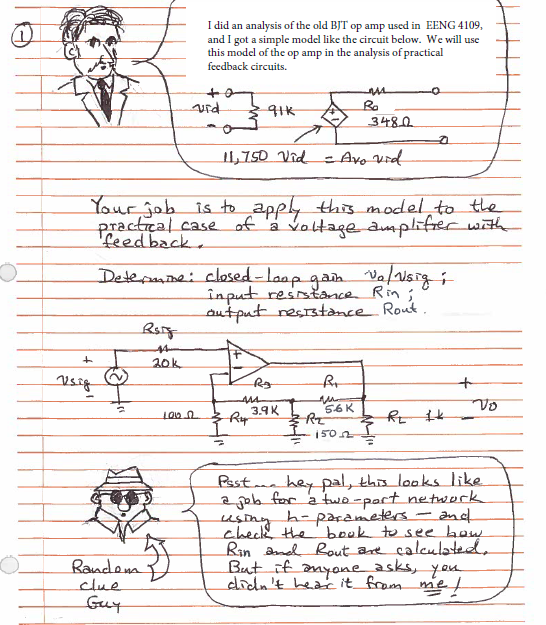 1
I did an analysis of the old BJT op amp used in EENG 4109,
and I got a simple model like the circuit below. We will use
this model of the op amp in the analysis of practical
feedback circuits.
+
vid
-
91K
+
-
Ro
348Ω
11,750 vid = Avo vid
Your job is to apply this model to the
practical case of a voltage amplifier with
feedback.
Determine: closed-loop gain vo/vsig ;
input resistance Rin ;
output resistance Rout.
Rsig
20K
+
vsig
-
+
-
R3
3.9K
R1
5.6K
100Ω
R4
R2
150Ω
RL
1k
+
vo
-
Psst... hey pal, this looks like
a job for a two-port network
using h-parameters – and
check the book to see how
Rin and Rout are calculated.
But if anyone asks, you
didn't hear it from me!
Random
clue
Guy